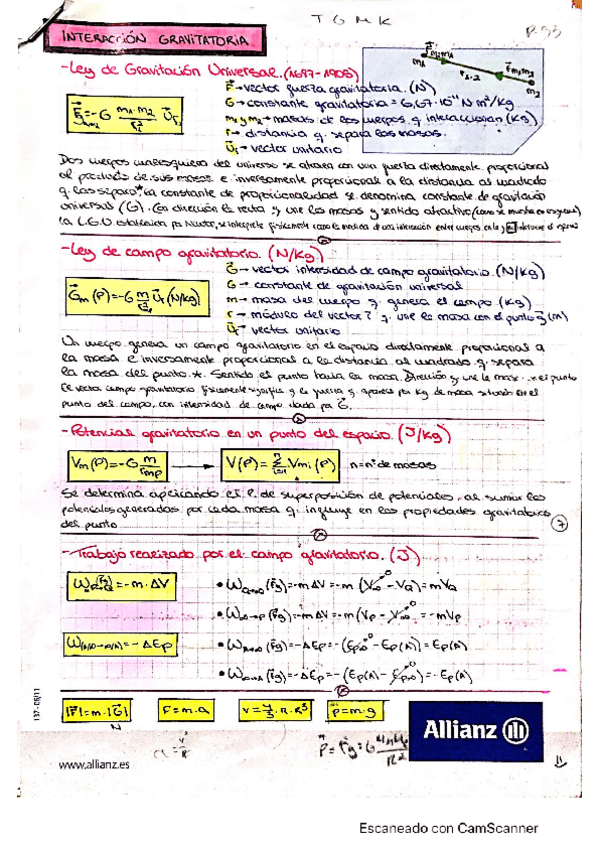 T G M K
P.33
INTERACCIÓN GRAVITATORIA.
-Ley de Gravitación Universal. (1687-1905)
F→vector fuerza gravitatoria. (N)
G→constante gravitatoria = 6,67·10⁻¹¹ N m²/Kg
m₁ y m₂→masas de los cuerpos q interaccionan (Kg)
r→ distancia q separa las masas.
Ur→ vector unitario
Fg=-G m₁·m₂/r² Ur
Dos cuerpos cualesquiera del universo se atraen con una fuerza directamente proporcional
al producto de sus masas e inversamente proporcional a la distancia al cuadrado
q las separa. La constante de proporcionalidad se denomina constante de gravitación
universal (G). La dirección la recta q une las masas y sentido atractivo
la L.G.U establecida por Newton, se interpreta físicamente como la medida de una interacción entre cuerpos
-Ley de campo gravitatorio. (N/Kg)
G→ vector intensidad de campo gravitatorio. (N/Kg)
G→ constante de gravitación universal
m→ masa del cuerpo q genera el campo (Kg)
r→ módulo del vector r q une la masa con el punto (m)
Ur→ vector unitario
Gm (P)=-G m/r² Ur (N/Kg)
Un cuerpo genera un campo gravitatorio en el espacio directamente proporcional a
la masa e inversamente proporcional a la distancia al cuadrado q separa
la masa del punto. Sentido el punto hacia la masa. Dirección q une la masa y el punto
El vector campo gravitatorio físicamente significa q la fuerza q aparece por Kg de masa situado en el
punto del campo, con intensidad de campo dada por G.
-Potencial gravitatorio en un punto del espacio. (J/Kg)
Vm(P)=-G m/rmp → V(P)=Σ Vmi (P) n=nº de masas
Se determina aplicando el P. de superposición de potenciales, al sumar los
potenciales generados por cada masa q influye en las propiedades gravitatorias
del punto
7
-Trabajo realizado por el campo gravitatorio. (J)
W(Fg)=-m·ΔV
•W(Fg)=-mΔV=-m(V∞-VA)=mVA
•W∞→P(Fg)=-mΔV=-m(VP-V∞)=-mVP
W=-ΔEp
•W(Fg)=-ΔEp=-(Ep∞-Ep(A))=Ep(A)
•W(Fg)=-ΔEp=-(Ep(A)-Ep∞)=-Ep(A)
|F|=m·|G|
F=m·a
V=4/3·π·R³
p=m·g
N
137-06/11
Allianz
www.allianz.es
11
Escaneado con CamScanner